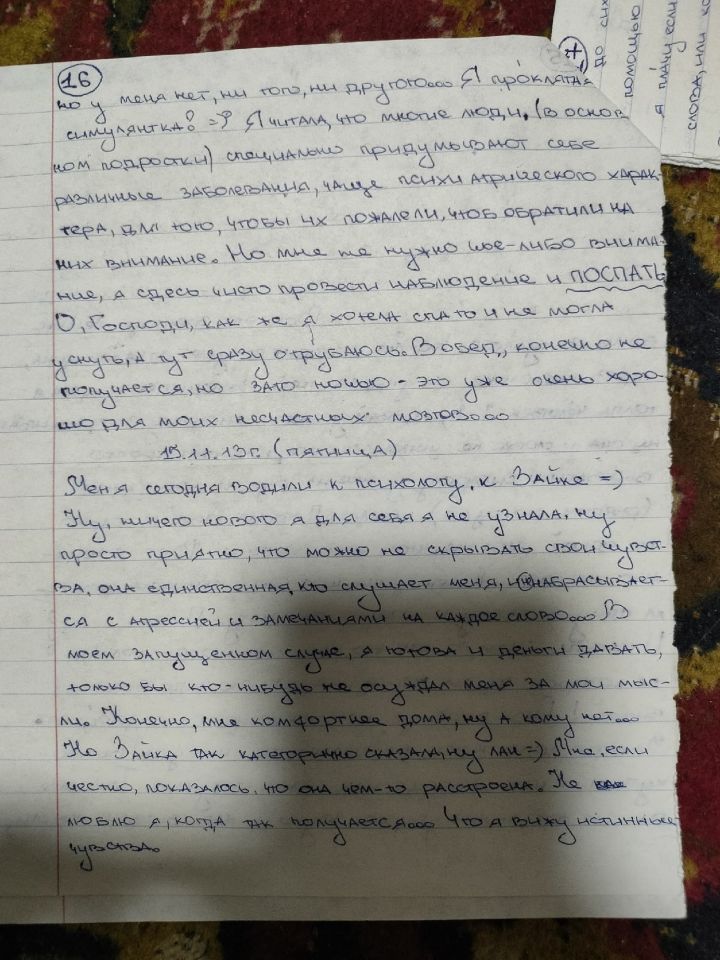 16
но у меня нет, ни того, ни другого... Я проклятая
симулянтка? =? Я читала, что многие люди, (в основ
ном подростки) специально придумывают себе
различные заболевания, чаще психиатрического харак-
тера, для того, чтобы их пожалели, чтоб обратили на
них внимание. Но мне не нужно чье-либо внима-
ние, а здесь чисто провести наблюдение и ПОСПАТЬ
О, Господи, как же я хотела спать и не могла
уснуть, а тут сразу отрубаюсь. В обед, конечно не
получается, но зато ночью - это уже очень хоро-
шо для моих несчастных мозгов...
15.11.13г. (пятница)
Меня сегодня водили к психологу, к Зайке =)
Ну, ничего нового я для себя я не узнала, ну
просто приятно, что можно не скрывать свои чувст-
ва, она единственная, кто слушает меня, и не набрасывает-
ся с агрессией и замечаниями на каждое слово... В
моем запущенном случае, я готова и деньги давать,
только бы кто-нибудь не осуждал меня за мои мыс-
ли. Конечно, мне комфортнее дома, ну а кому нет...
Но Зайка так категорично сказала, ну лан =) Мне, если
честно, показалось, что она чем-то расстроена. Не
люблю я, когда так получается... Что я вижу истинные
чувства.
до сих
помощью
я плачу если
слова, или